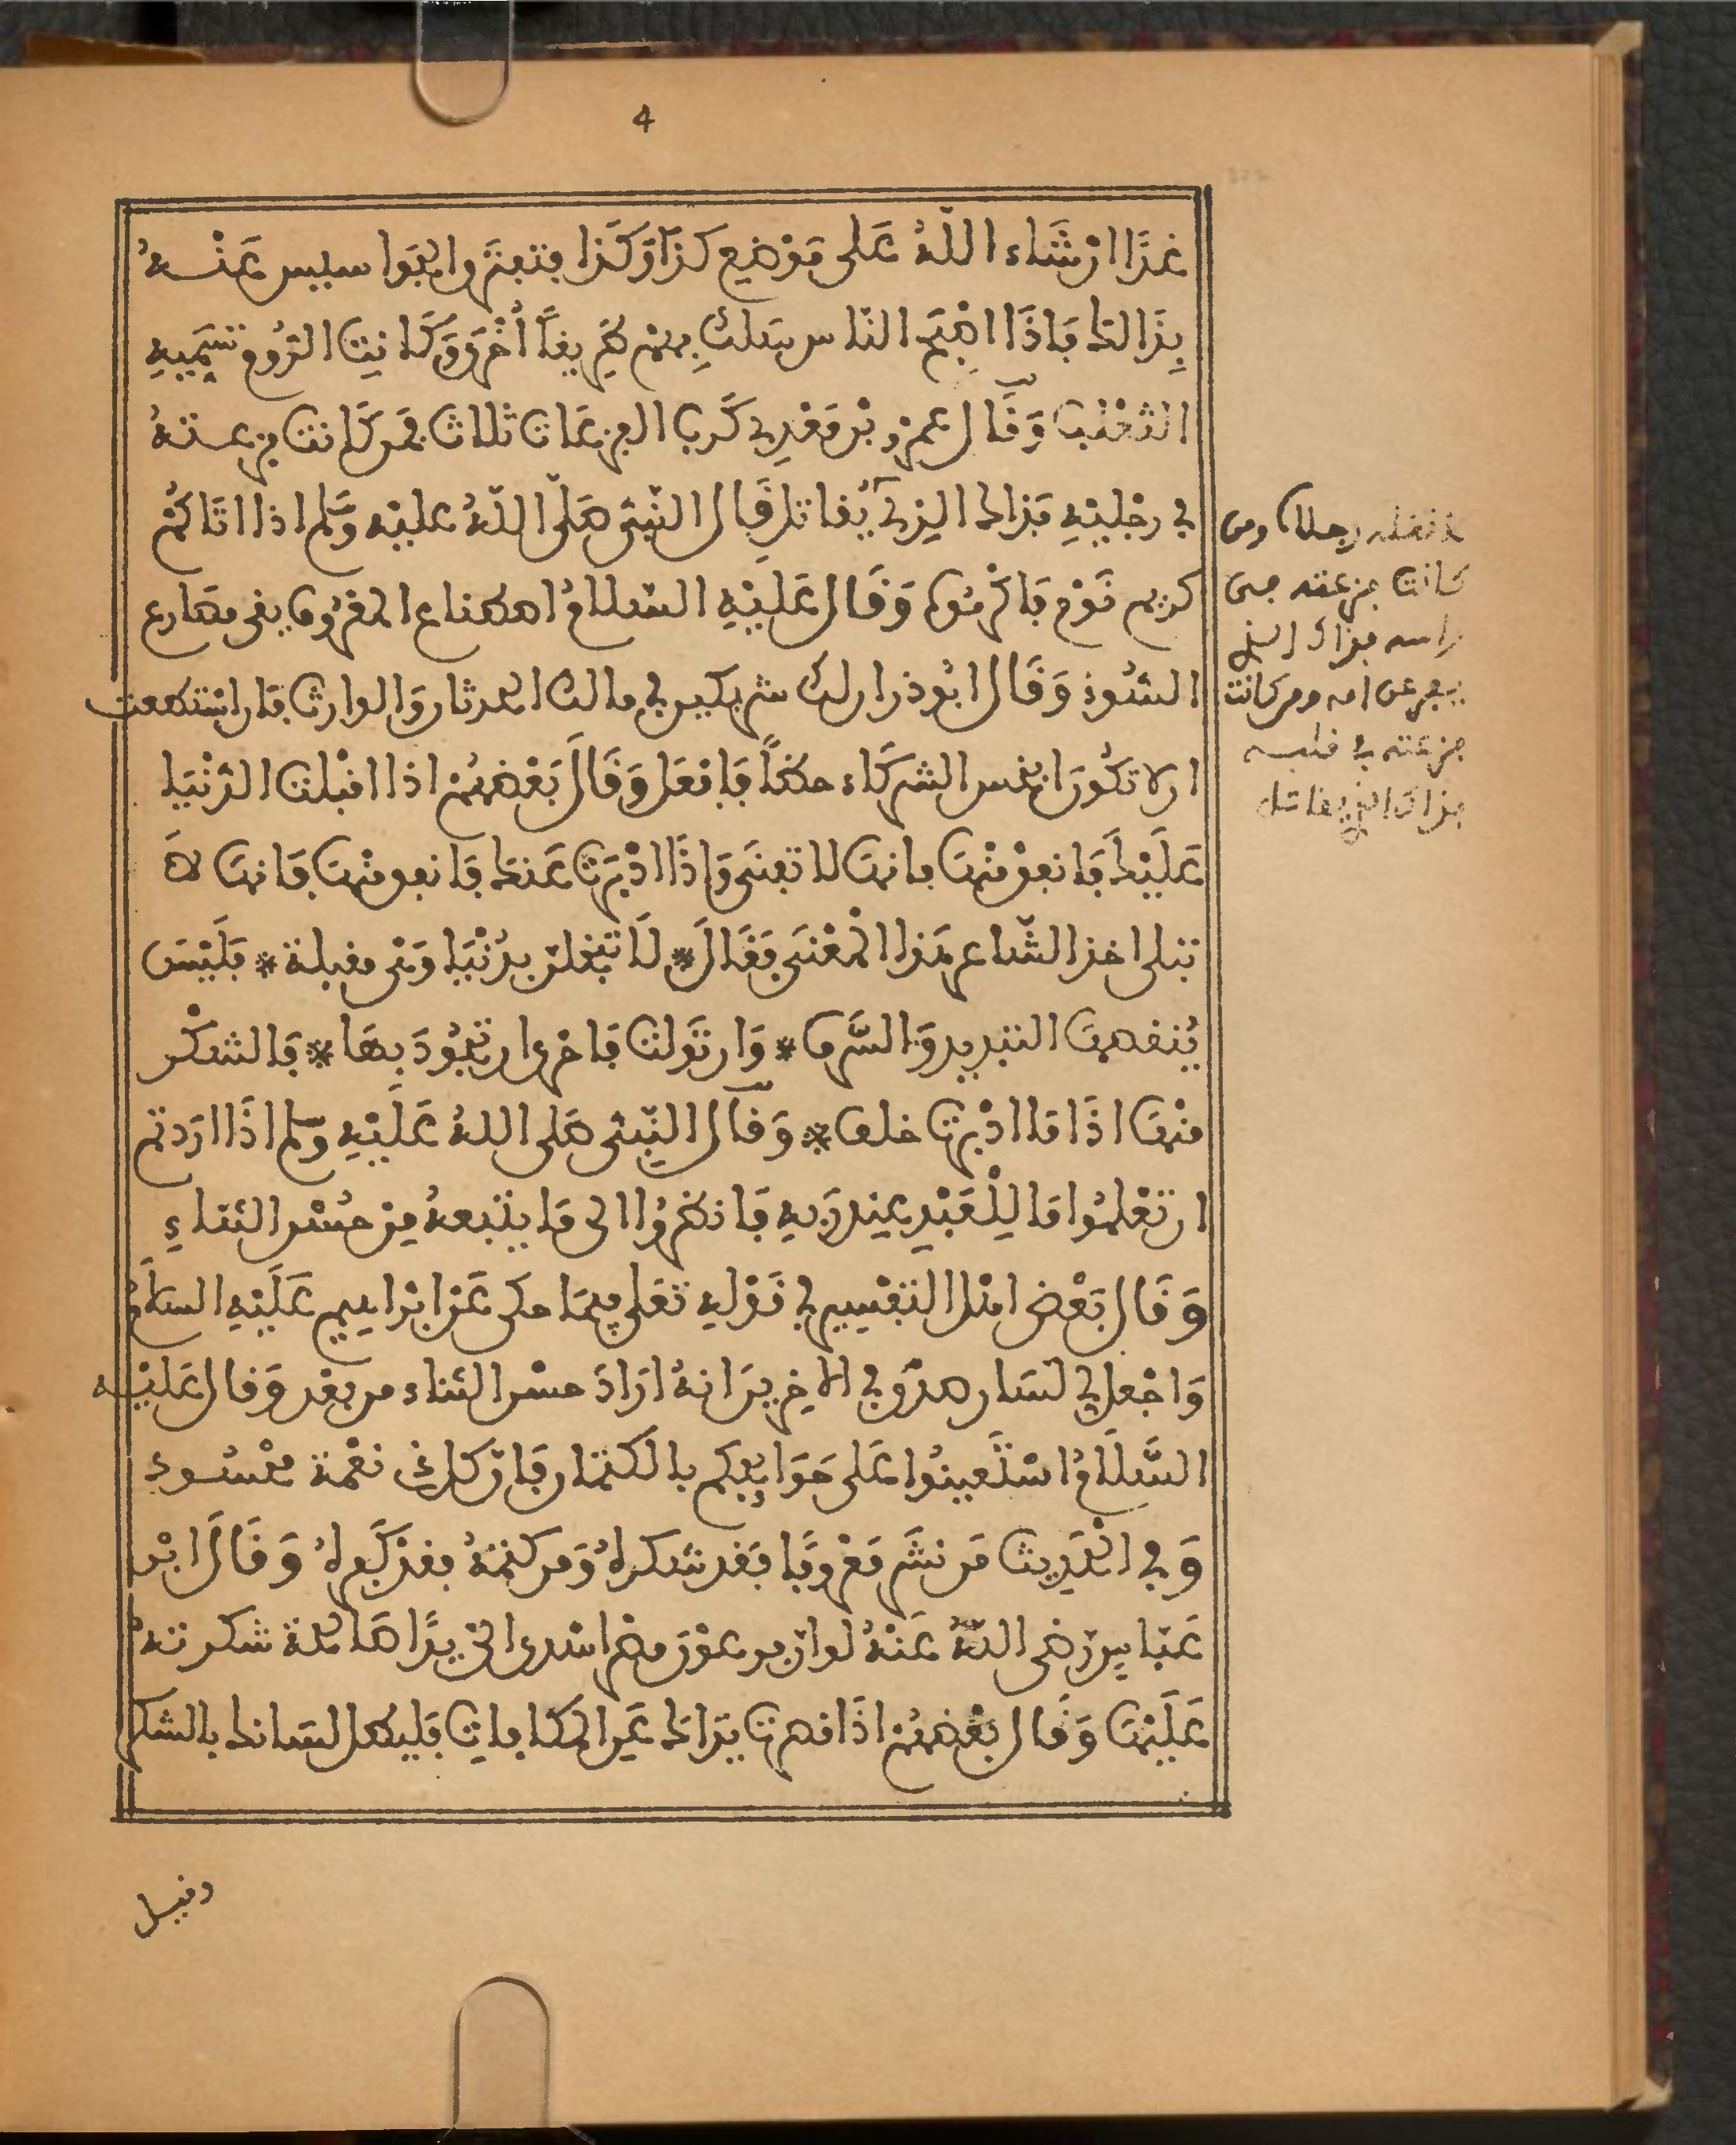 4
غدًا ان شَاء اللهُ على مَوْضِع كذا وَكَذا فتعبَّوا سيبس عَنْهُ
بِذَالك فَاذَا اصْبَح النّاس سَلك بِهِمْ طَرِيقاً أخْرَى وَكَانت الرُّوم تسَمِّيهِ
الثعْلب وَقَال عمرو بْن مَعْدِي كَرب الفزعَات ثلاث فمن كَانت فزعته
في رجْليْهِ فذاك الذي لا يُقاتل قَال النّبيُّ صَلى اللهُ عليْه وَسلم اذا اتاكُمْ
كريم قَوْم فَاكْرمُوه وَقَال عَليْهِ السّلامُ اصطناع المعْرُوف يقي مصَارع
السُّوء وَقَال ابُو ذر ان لك في مالك شريكين الحدثان وَالوارث فان اسْتطعت
ان لا تكُون اخس الشركَاء حظاً فافعَل وَقَال بَعْضهُمْ اذا اقْبلت الدّنْيَا
عَلَيْك فَانفقْ مِنْهَا فانهَا لا تفنَى وَاذَا ادْبَرَت عَنك فَانفق منْهَا فَانهَا لَا
تبقى اخذ الشّاعر هَذا المعْنى فقَال * لَا تبْخلنّ بدُنْيَا وَهْي مقبلة * فَلَيْسَ
يُنقصهَا التبذير وَالسَّرف * وَان تَولت فَاحْرى ان تجُودَ بهَا * فَالشكْر
منْهَا اذَا مَا ادْبرت خلف * وَقَال النّبيُّ صَلى اللهُ عَلَيْهِ وَسلم اذَا ارَدتم
ان تعْلمُوا مَا لِلْعَبْدِ عِند رَبهِ فَانظرُوا الى مَا يتبعهُ مِنْ حُسْن الثناءِ
وَقَال بَعْض اهْل التفْسِير في قَوْلِهِ تعَلى فيمَا حكى عَنْ ابْراهِيم عَلَيْهِ السّلَامُ
وَاجْعل لي لسَان صدْق في الاخرين انهُ ارَادَ حسْن الثناء من بعْد وَقال عَليْه
السَّلَامُ اسْتَعينُوا عَلى حَوَايجكم بالكتمَان فَانّ كل ذي نعْمة محْسُود
وَفي الحَدِيث مَن نشَر مَعْرُوفًا فقد شكرهُ وَمن كتمهُ فقد كَفرهُ وَقَال ابْن
عَبّاس رَضي اللهُ عَنْهُ لو انّ فرعوْن مصر اسْدى اليّ يدًا صَالحة شكرتهُ
عَلَيْهَا وَقَال بَعْضهُمْ اذَا قصرت يدَاك عَن المكَافات فليطل لسانك بالشكر
وقيل
لا تقله رجلاه ومن
كانت فزعته في
راسه فذاك الذي
يفر عن ابويه ومن كانت
فزعته في قلبه
فذاك الذي يقاتل